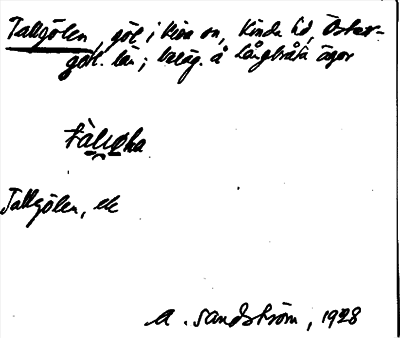 Tallgölen, göl i Kisa sn, Kinda hd, Öster-
götl. län; beläg. å Långbråta ägor
Tallgölen, ek
A. Sandström, 1928